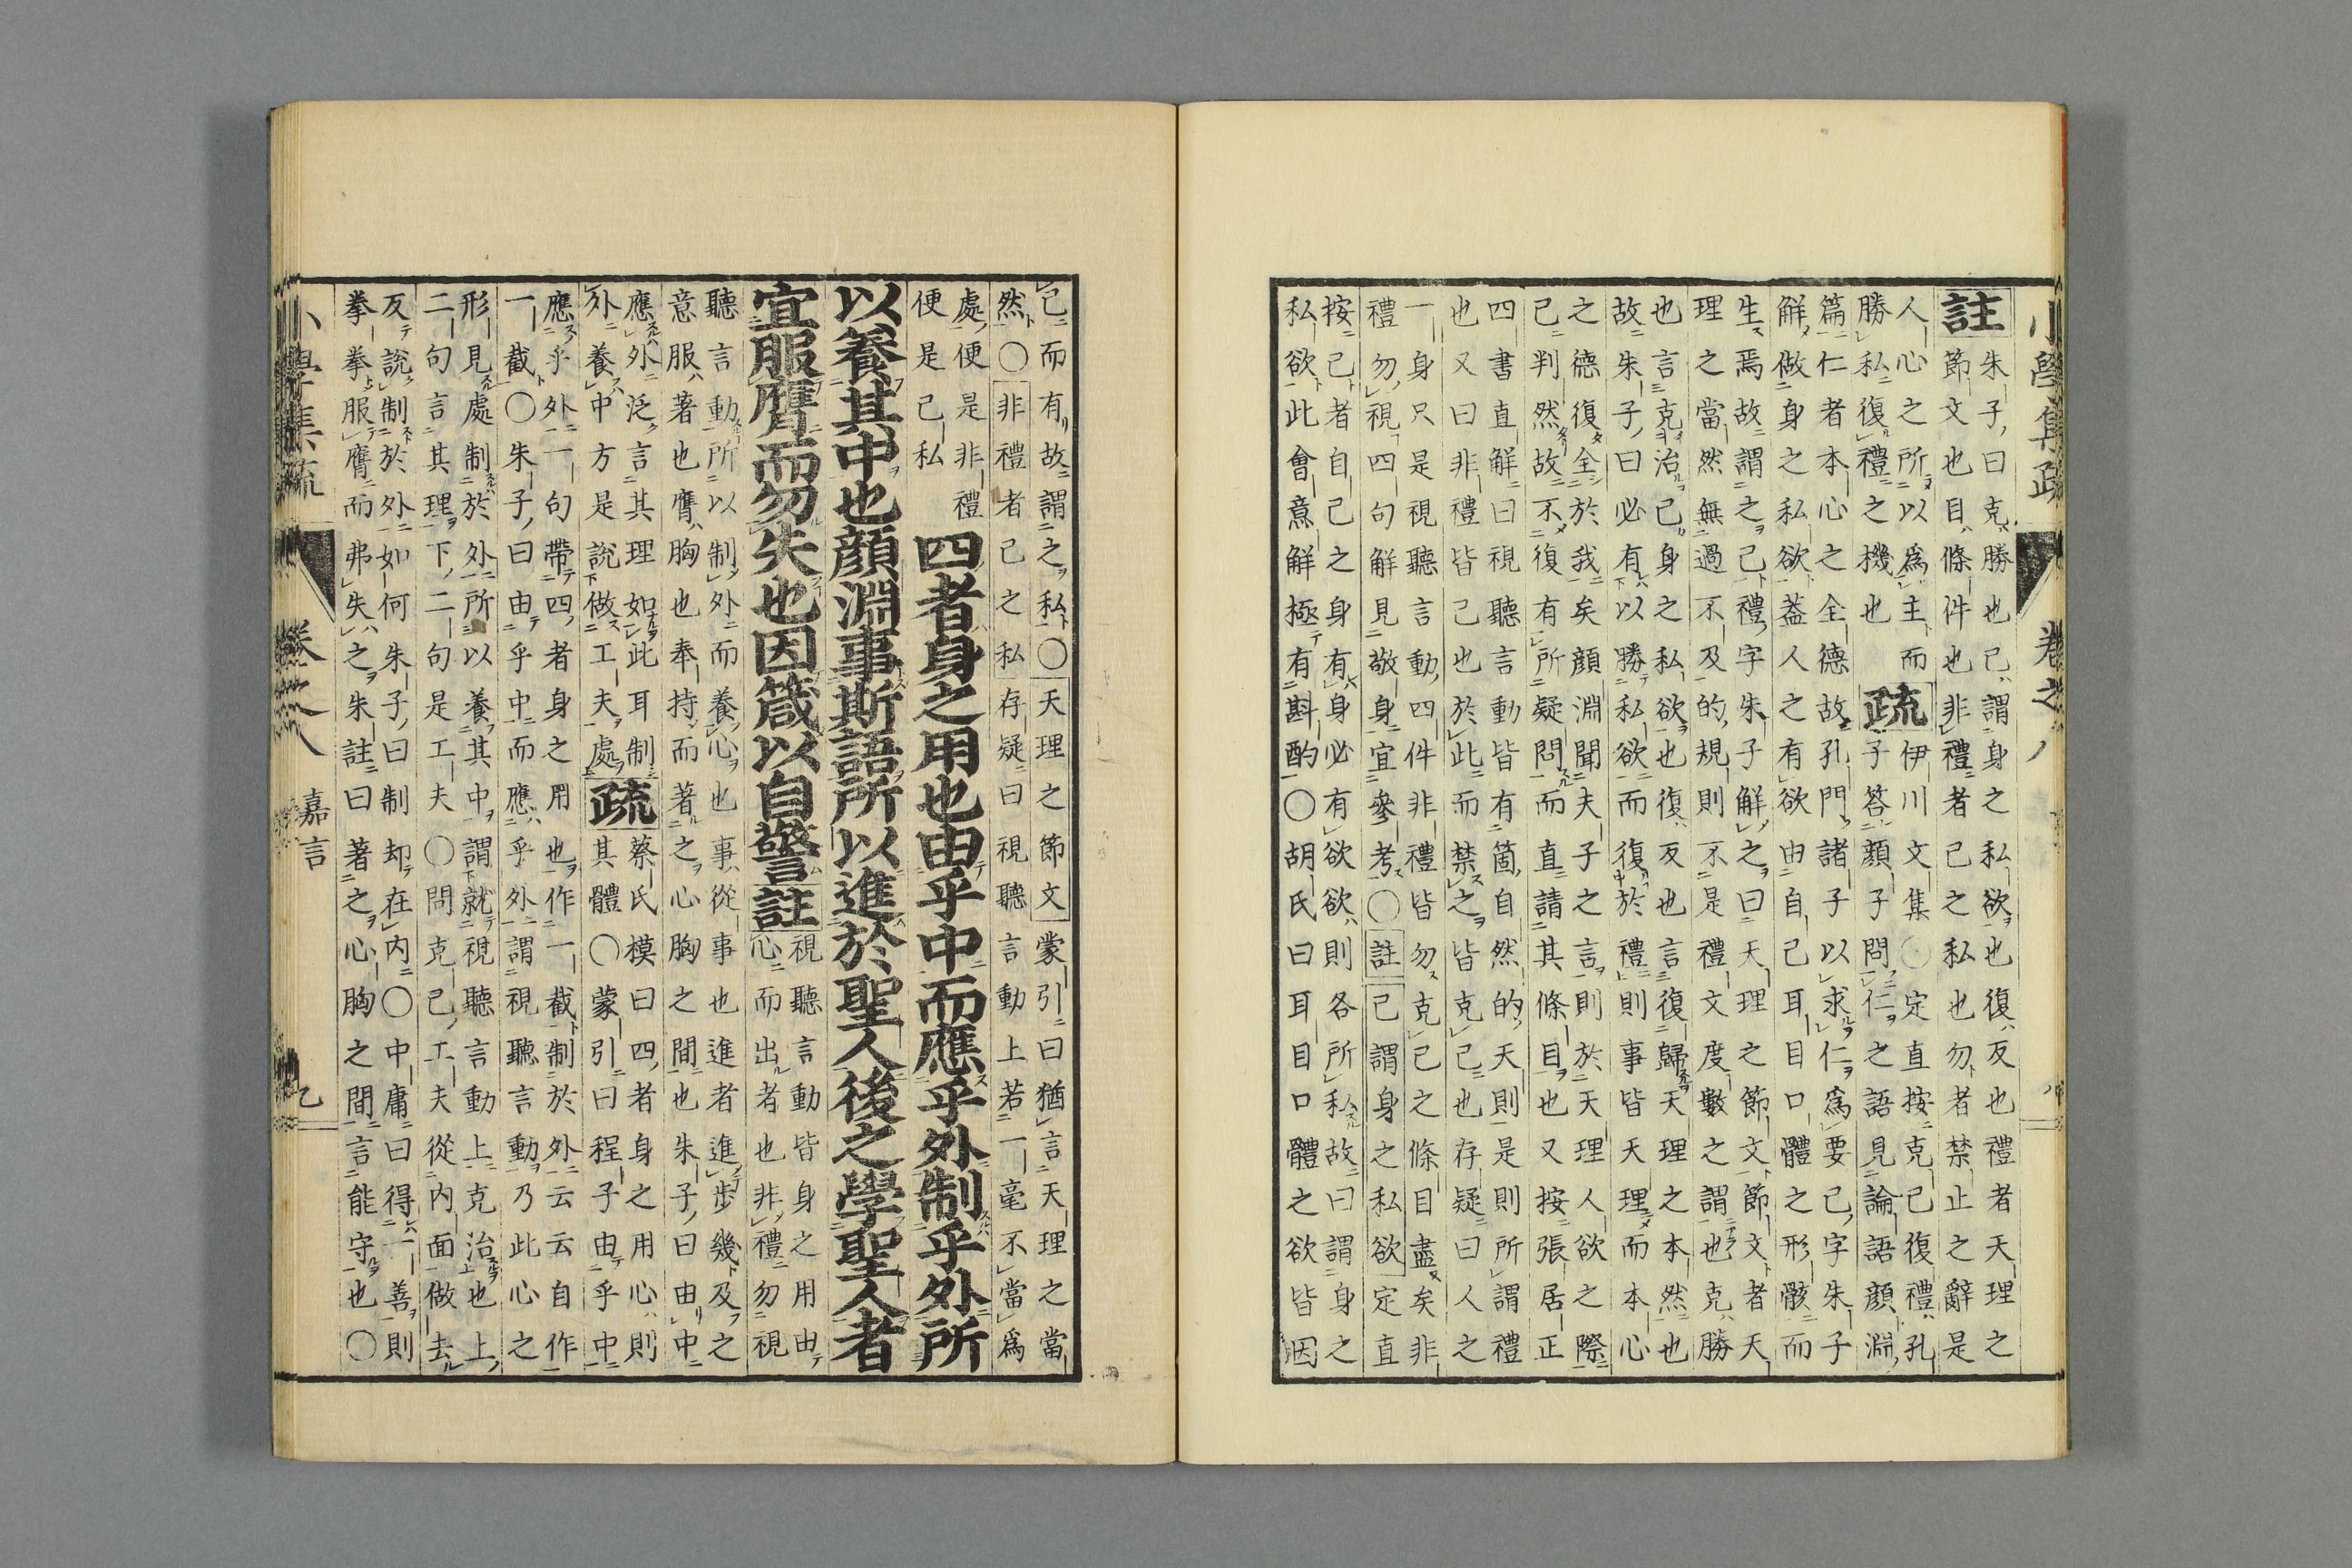 小學集疏 卷之八 八
註
朱子曰克勝也己謂身之私欲也復反也禮者天理之
節文也目條件也非禮者己之私也勿者禁止之辭是
人心之所以爲主而
勝私復禮之機也
疏
伊川文集○定直按克己復禮孔
子答顏子問仁之語見論語顏淵
篇仁者本心之全德故孔門諸子以求仁爲要己字朱子
解做身之私欲蓋人之有欲由自己耳目口體之形骸而
生焉故謂之己禮字朱子解之曰天理之節文節文者天
理之當然無過不及的規則不是禮文度數之謂也克勝
也言克治己身之私欲也復反也言復歸天理之本然也
故朱子曰必有以勝私欲而復於禮則事皆天理而本心
之德復全於我矣顏淵聞夫子之言則於天理人欲之際
已判然故不復有所疑問而直請其條目也又按張居正
四書直解曰視聽言動皆有箇自然的天則是則所謂禮
也又曰非禮皆己也於此而禁之皆克己也存疑曰人之
一身只是視聽言動四件非禮皆勿克己之條目盡矣非
禮勿視四句解見敬身宜參考○註己謂身之私欲定直
按己者自己之身有身必有欲欲則各所私故曰謂身之
私欲此會意解極有斟酌○胡氏曰耳目口體之欲皆因
己而有故謂之私○天理之節文蒙引曰猶言天理之當
然○非禮者己之私存疑曰視聽言動上若一毫不當爲
處便是非禮
便是己私
四者身之用也由乎中而應乎外制乎外所
以養其中也顏淵事斯語所以進於聖人後之學聖人者
宜服膺而勿失也因箴以自警
註
視聽言動皆身之用由
心而出者也非禮勿視
聽言動所以制外而養心也事從事也進者進步幾及之
意服著也膺胸也奉持而著之心胸之間也朱子曰由中
應外泛言其理如此耳制
外養中方是說做工夫處
疏
蔡氏模曰四者身之用心則
其體○蒙引曰程子由乎中
應乎外一句帶四者身之用也作一截制於外云云自作
一截○朱子曰由乎中而應乎外謂視聽言動乃此心之
形見處制於外所以養其中謂就視聽言動上克治也上
二句言其理下二句是工夫○問克己工夫從內面做去
反說制於外如何朱子曰制却在內○中庸曰得一善則
拳拳服膺而弗失之朱註曰著之心胸之間言能守也○
小學集疏 卷之八 嘉言 九